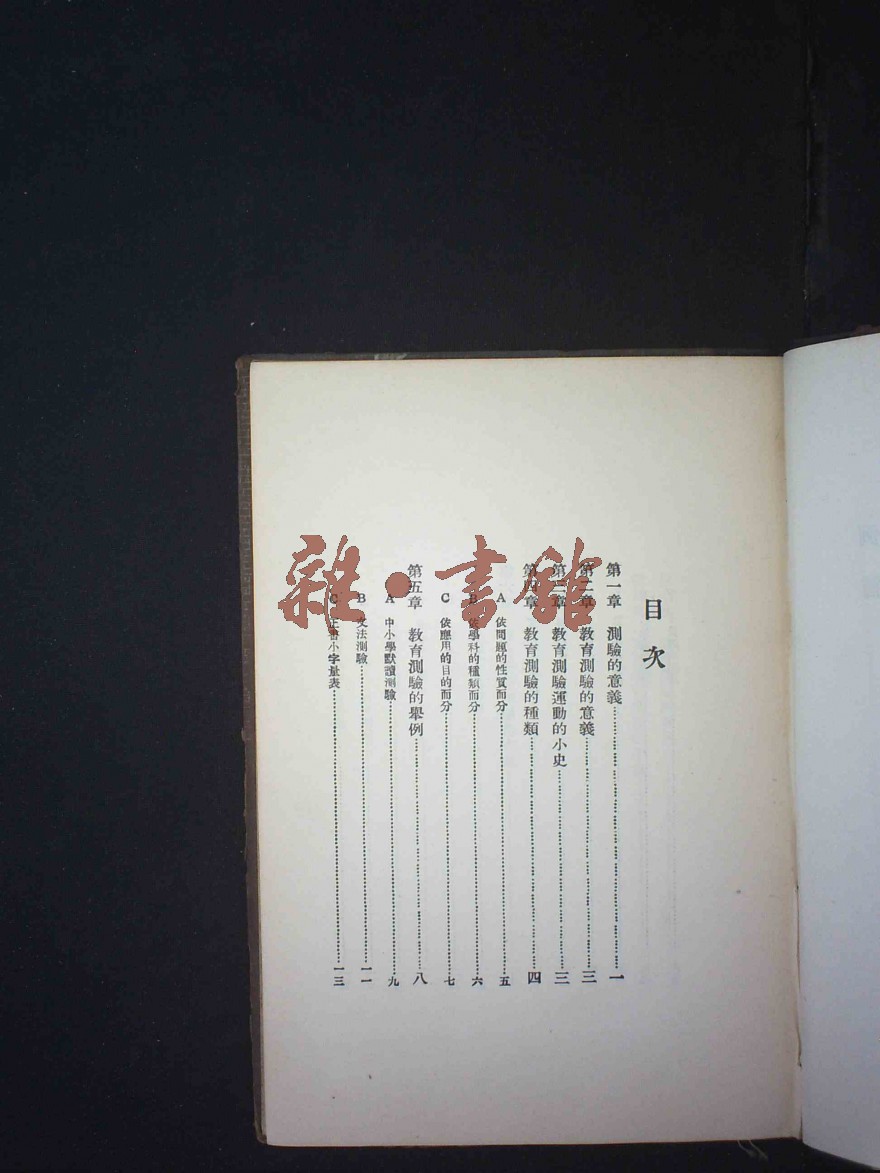 目次
第一章 測驗的意義……一
第二章 教育測驗的意義……三
第三章 教育測驗運動的小史……三
第四章 教育測驗的種類……四
A 依問題的性質而分……五
B 依學科的種類而分……六
C 依應用的目的而分……七
第五章 教育測驗的舉例……八
A 中小學默讀測驗……九
B 文法測驗……一一
C 正書小字量表……一三
雜·書館